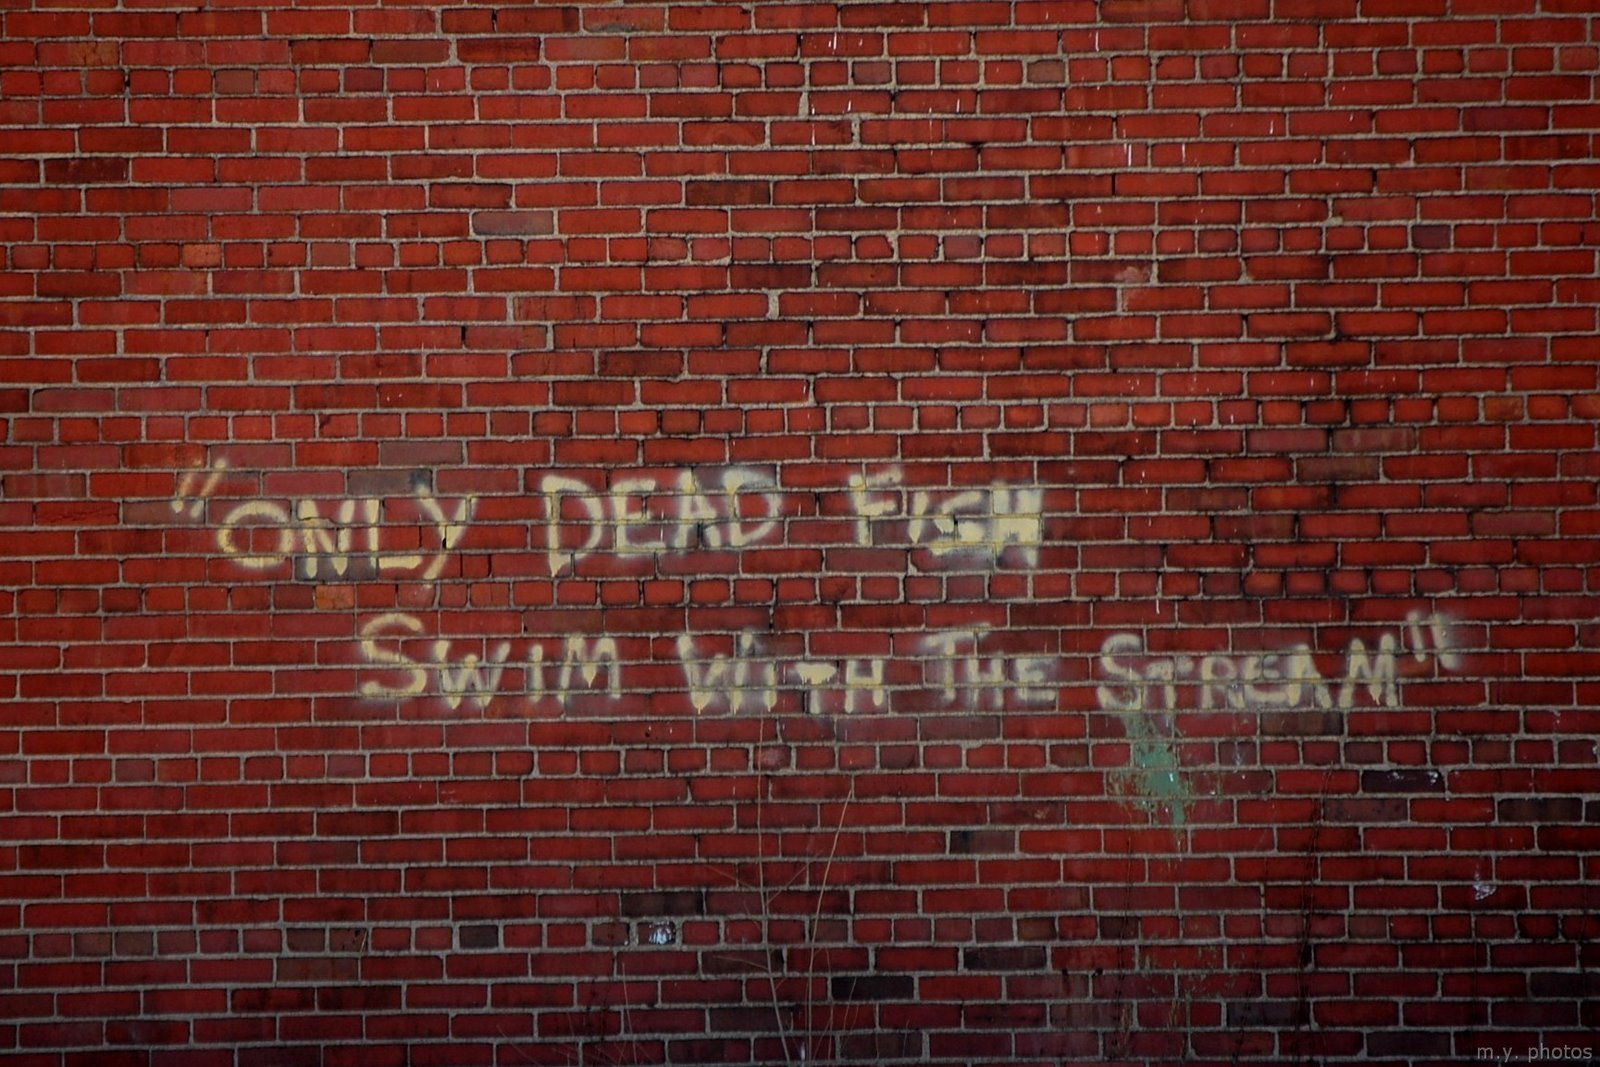 "ONLY DEAD FISH
SWIM WITH THE STREAM"
m.y. photos